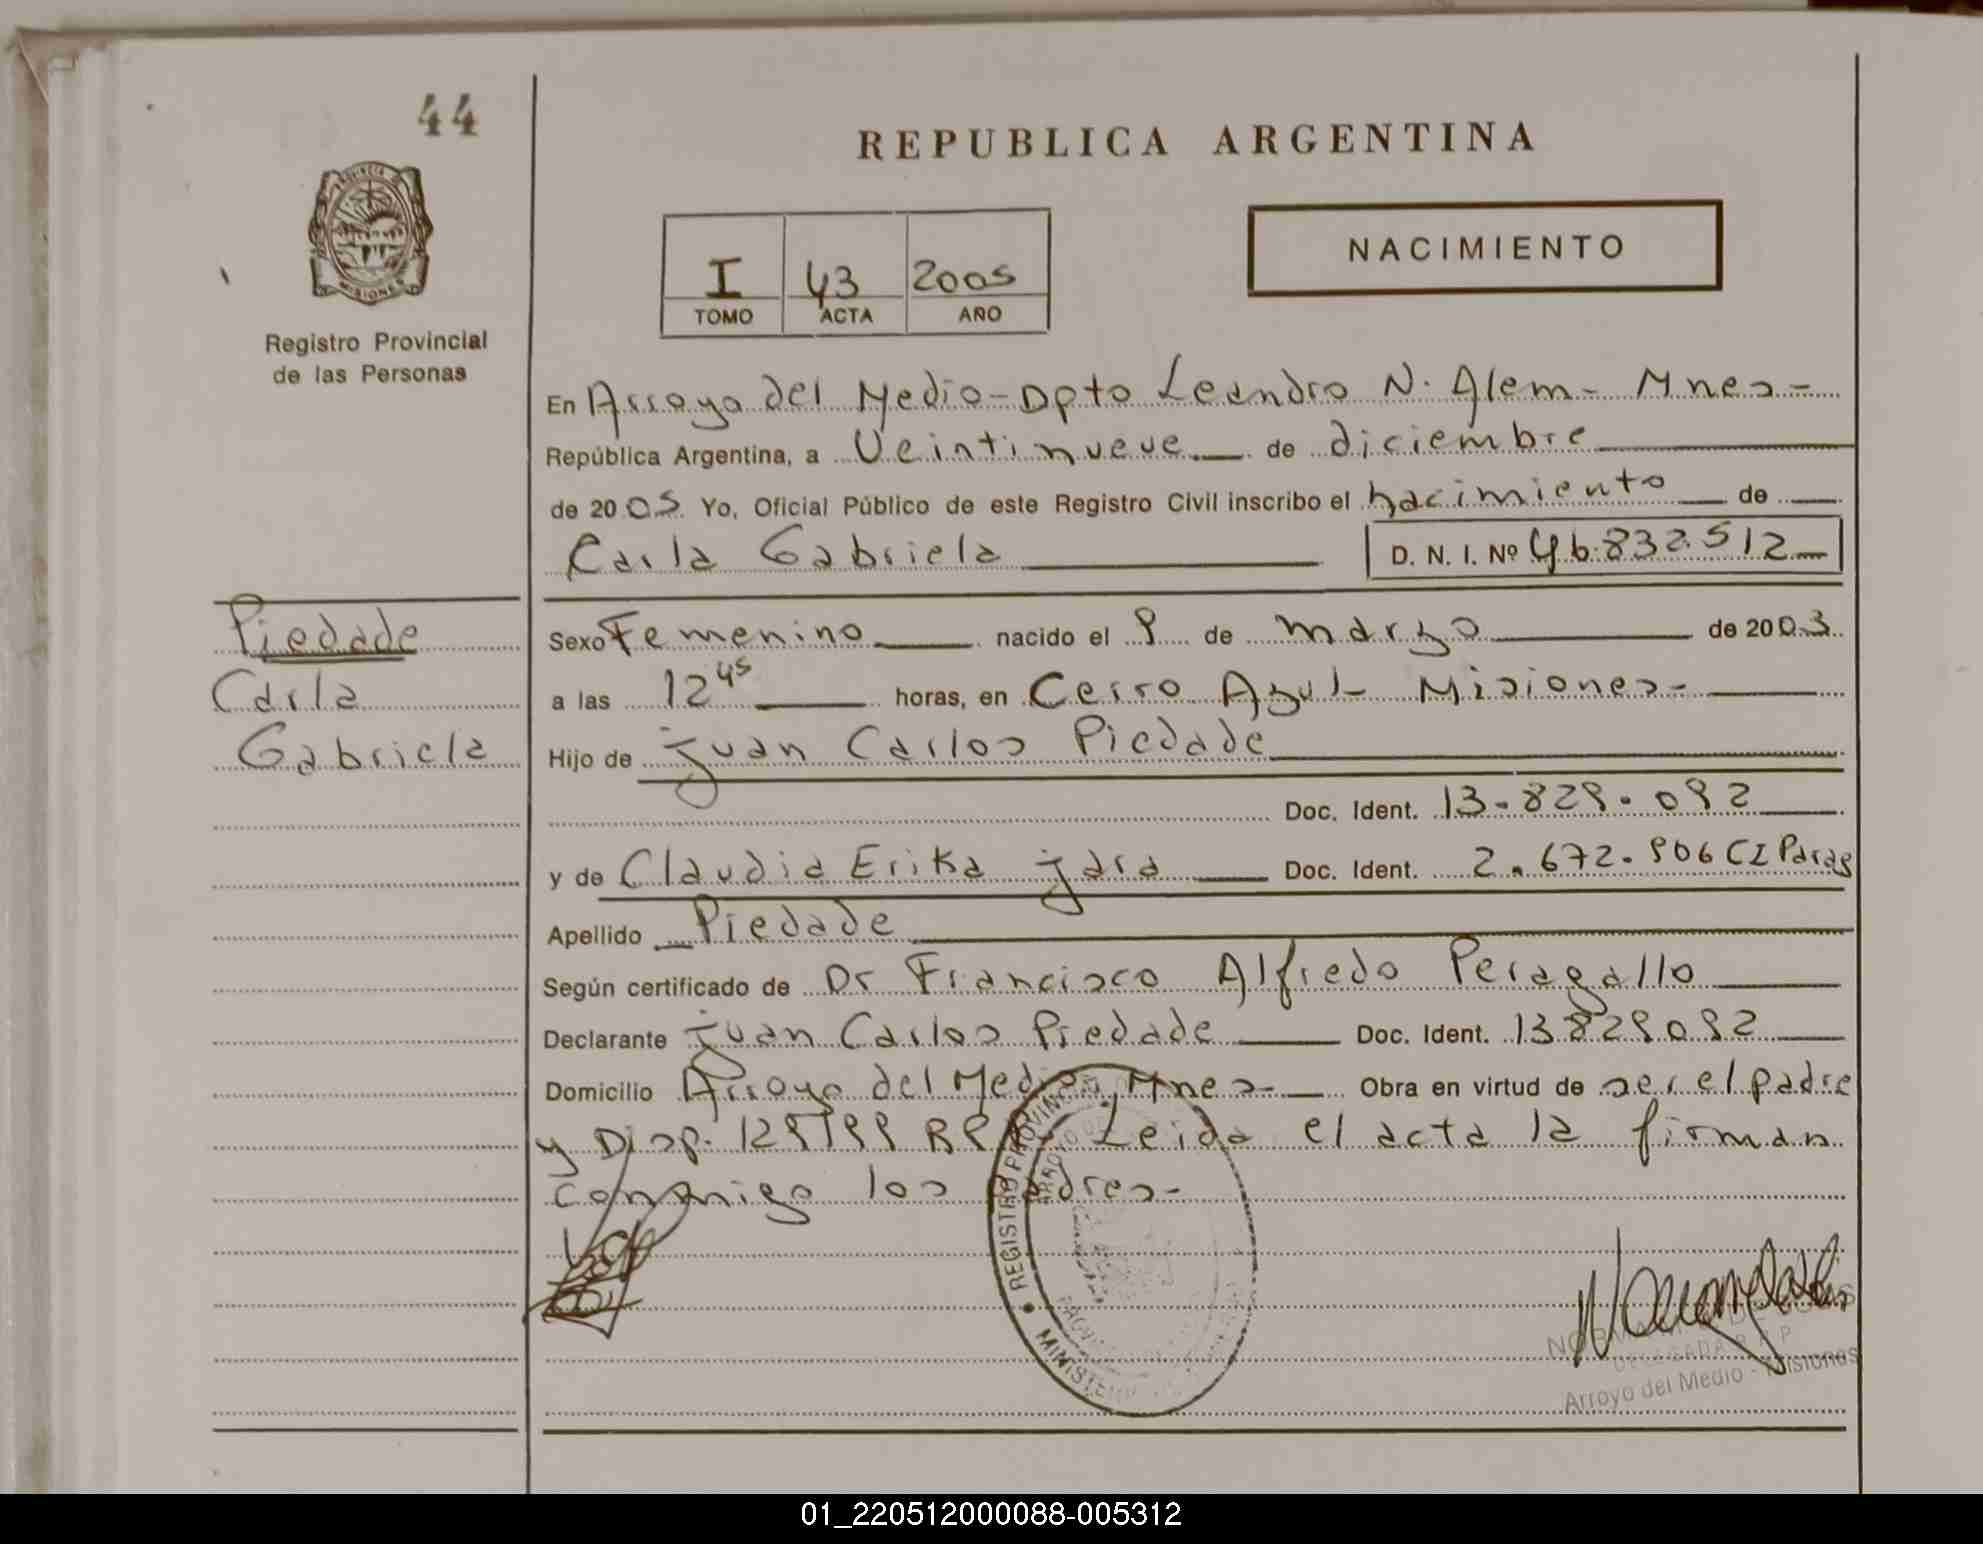 44
REPUBLICA ARGENTINA
PROVINCIA DE
MISIONES
Registro Provincial
de las Personas
NACIMIENTO
I 43 2005
TOMO ACTA AÑO
En Arroyo del Medio - Dpto Leandro N. Alem - Mnes -
República Argentina, a Veintinueve de diciembre
de 2005 Yo, Oficial Público de este Registro Civil inscribo el nacimiento de
Carla Gabriela D. N. I. Nº 46.832.512
Piedade
Carla
Gabriela
Sexo Femenino nacido el 9 de marzo de 2003
a las 12 45 horas, en Cerro Azul - Misiones -
Hijo de Juan Carlos Piedade
Doc. Ident. 13.829.092
y de Claudia Erika Jara Doc. Ident. 2.672.906 CI Parag
Apellido Piedade
Según certificado de Dr Francisco Alfredo Peragallo
Declarante Juan Carlos Piedade Doc. Ident. 13829092
Domicilio Arroyo del Medio, Mnes - Obra en virtud de ser el padre
y Disp. 129/99 Leida el acta la firman
conmigo los padres -
REGISTRO PROVINCIAL
MINISTERIO
DELEGADA R.P.P
Arroyo del Medio - Misiones
01_220512000088-005312